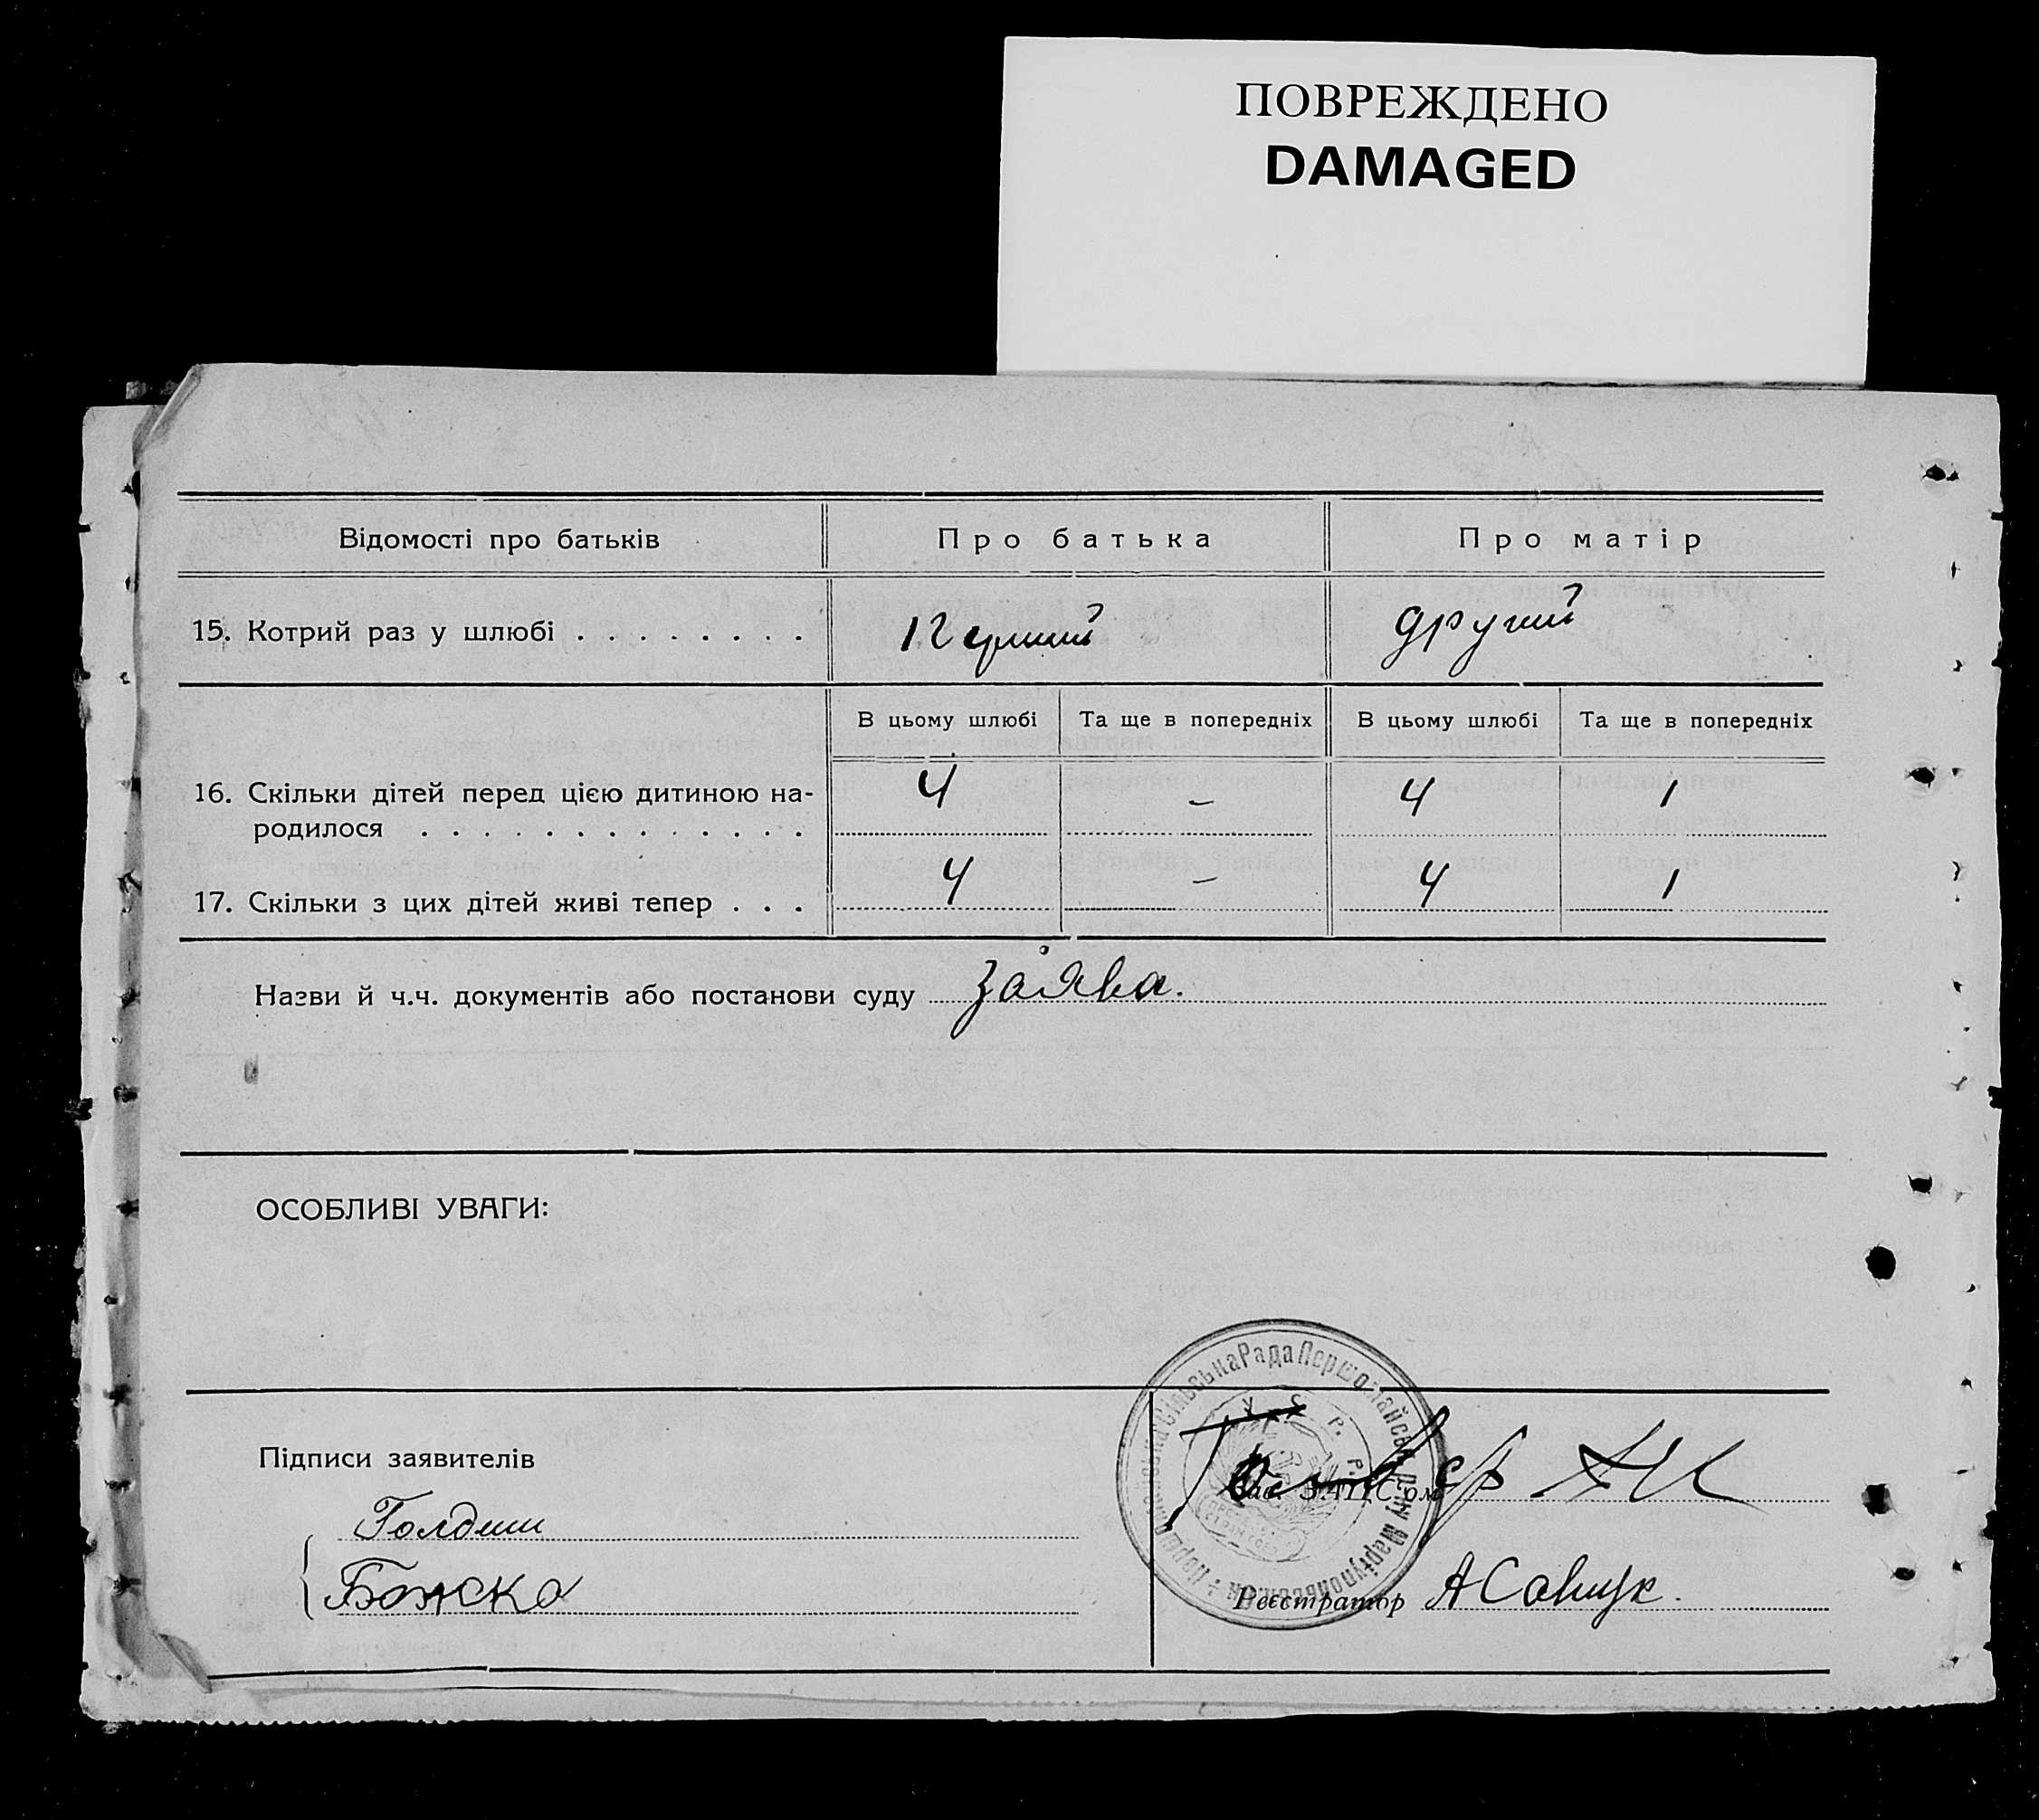 ПОВРЕЖДЕНО
DAMAGED
Відомості про батьків
Про батька
Про матір
15. Котрий раз у шлюбі . . . . . . . .
перший
другий
В цьому шлюбі
Та ще в попередніх
В цьому шлюбі
Та ще в попередніх
16. Скільки дітей перед цією дитиною на-
родилося . . . . . . . . . . . . . .
4
–
4
1
17. Скільки з цих дітей живі тепер . . .
4
–
4
1
Назви й ч.ч. документів або постанови суду заява.
ОСОБЛИВІ УВАГИ:
Сільська Рада Першотравенськ
У. С. Р. Р.
Підписи заявителів
Зав. ЗАЦС'ом
Божко
Реєстратор АСавчук.